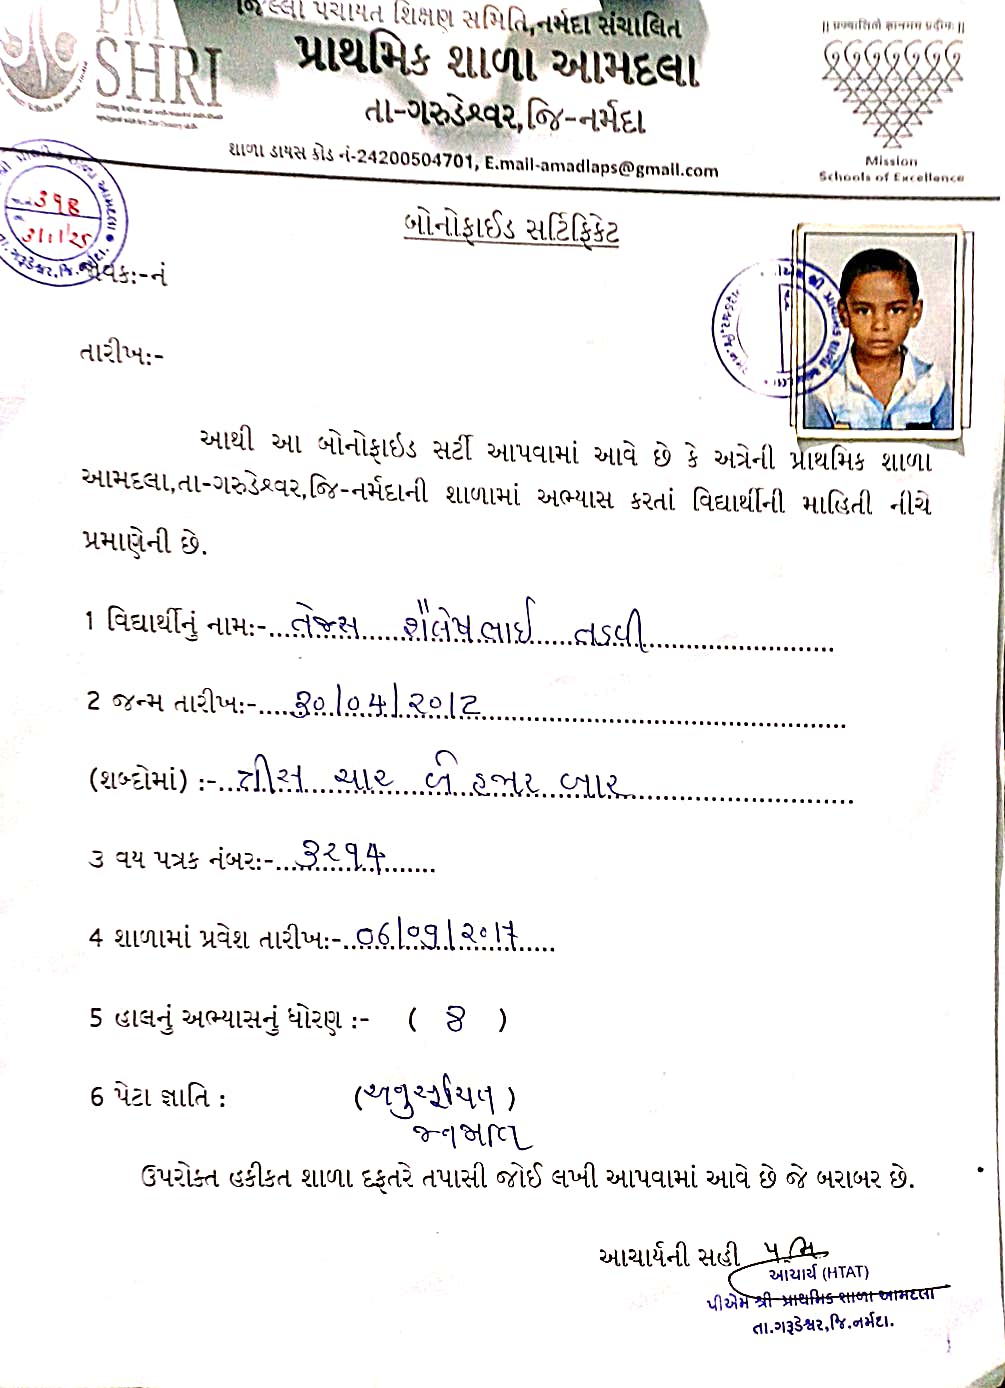 જિલ્લા પંચાયત શિક્ષણ સમિતિ,નર્મદા સંચાલિત
PM
SHRI
પ્રાથમિક શાળા આમદલા
તા-ગરુડેશ્વર,જિ-નર્મદા
શાળા ડાયસ કોડ નં-24200504701, E.mail-amadlaps@gmail.com
Mission
Schools of Excellence
૩૧૪
31/1/25
તા.ગરૂડેશ્વર,જિ.નર્મદા.
બોનોફાઈડ સર્ટિફિકેટ
જાવક:-નં
તારીખ:-
આથી આ બોનોફાઇડ સર્ટી આપવામાં આવે છે કે અત્રેની પ્રાથમિક શાળા
આમદલા,તા-ગરુડેશ્વર,જિ-નર્મદાની શાળામાં અભ્યાસ કરતાં વિદ્યાર્થીની માહિતી નીચે
પ્રમાણેની છે.
1 વિદ્યાર્થીનું નામ:-....તેજસ શૈલેષભાઈ તડવી....
2 જન્મ તારીખ:-....30/04/2012....
(શબ્દોમાં) :-...ત્રીસ ચાર બે હજાર બાર....
3 વય પત્રક નંબર:-....૩૨૧૫....
4 શાળામાં પ્રવેશ તારીખ:-...06/09/2017....
5 હાલનું અભ્યાસનું ધોરણ :- ( 8 )
6 પેટા જ્ઞાતિ : (અનુસૂચિત )
જનજાતિ
ઉપરોક્ત હકીકત શાળા દફતરે તપાસી જોઈ લખી આપવામાં આવે છે જે બરાબર છે.
આચાર્યની સહી
આચાર્ય (HTAT)
પીએમ શ્રી પ્રાથમિક શાળા આમદલા
તા.ગરૂડેશ્વર,જિ.નર્મદા.